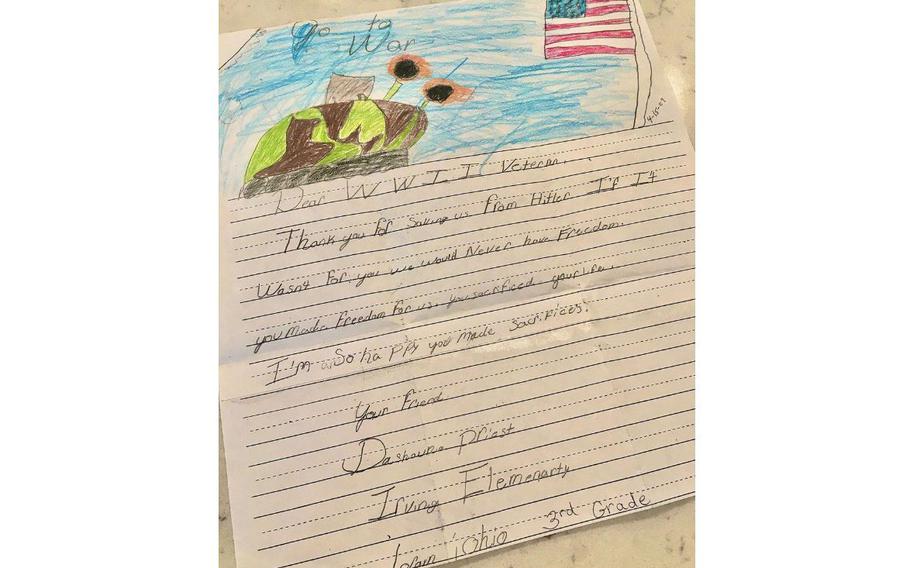 Go to
War
Dear WWII Veteran,
Thank you for saving us from Hitler If It
Wasnt For you we would Never have Freedom.
you made freedom for us. you sacrificed your life.
I'm so happy you made sacrifices.
Your Friend
Dashawna Priest
Irving Elemenarty
Lorain Ohio 3rd Grade